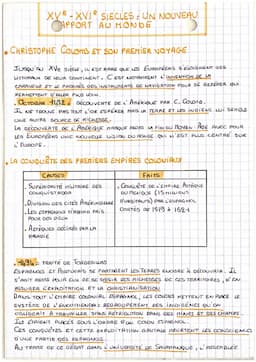 XVe - XVIe SIECLES : UN NOUVEAU
RAPPORT AU MONDE
CHRISTOPHE COLOMB ET SON PREMIER VOYAGE
JUSQU'AU XVe SIÈCLE, IL EST RARE QUE LES EUROPÉENS S'ÉLOIGNENT DES
LITTORAUX DE LEUR CONTINENT. C'EST NOTAMMENT L'INVENTION DE LA
CARAVELLE ET LE PROGRÈS DES INSTRUMENTS DE NAVIGATION POUR SE REPÉRER QUI
PERMETTENT D'ALLER PLUS LOIN.
OCTOBRE 1492 : DÉCOUVERTE DE L'AMÉRIQUE PAR C. COLOMB.
IL NE TROUVE PAS TOUT L'OR ESPÉRÉ MAIS LA TERRE ET LES INDIENS LUI SEMBLE
UNE AUTRE SOURCE DE RICHESSE.
LA DÉCOUVERTE DE L'AMÉRIQUE MARQUE POUR LA FIN DU MOYEN ÂGE AVEC POUR
LES EUROPÉENS UNE NOUVELLE VISION DU MONDE QUI N'EST PLUS CENTRÉ SUR
L'EUROPE.
LA CONQUÊTE DES PREMIERS EMPIRES COLONIAUX
CAUSES
FAITS
- SUPÉRIORITÉ MILITAIRE DES
CONQUISTADORS
- DIVISION DES CITÉS AMÉRINDIENNES
- LES ESPAGNOLS D'ABORD PRIS
POUR DES DIEUX
- AZTÈQUES DÉCIMÉS PAR LA
MALADIE
- CONQUÊTE DE L'EMPIRE AZTÈQUE
DU MEXIQUE (15 MILLIONS
HABITANTS) PAR L'ESPAGNOL
CORTÈS DE 1519 À 1521
1494 : TRAITÉ DE TORDESILLAS
ESPAGNOLS ET PORTUGAIS SE PARTAGENT LES TERRES ENCORE À DÉCOUVRIR. IL
S'AGIT AUSSI POUR EUX DE SE SAISIR DES RICHESSES DE CES TERRITOIRES, D'EN
ASSURER L'EXPLOITATION ET LA CHRISTIANISATION
DANS TOUT L'EMPIRE COLONIAL ESPAGNOL, LES COLONS METTENT EN PLACE LE
SYSTÈME DE L'ENCOMIENDA : REGROUPEMENT DES INDIGÈNES QU'ON
OBLIGEAIT À TRAVAILLER SANS RÉTRIBUTION DANS DES MINES ET DES CHAMPS.
ILS ÉTAIENT PLACÉS SOUS L'ORDRE D'UN COLON ESPAGNOL.
CES CONQUÊTES ET CETTE EXPLOITATION BRUTALE HEURTENT LES CONSCIENCES
D'UNE PARTIE DES ESPAGNOLS.
AU TERME DE CE DÉBAT DANS L'UNIVERSITÉ DE SALAMANQUE, L'